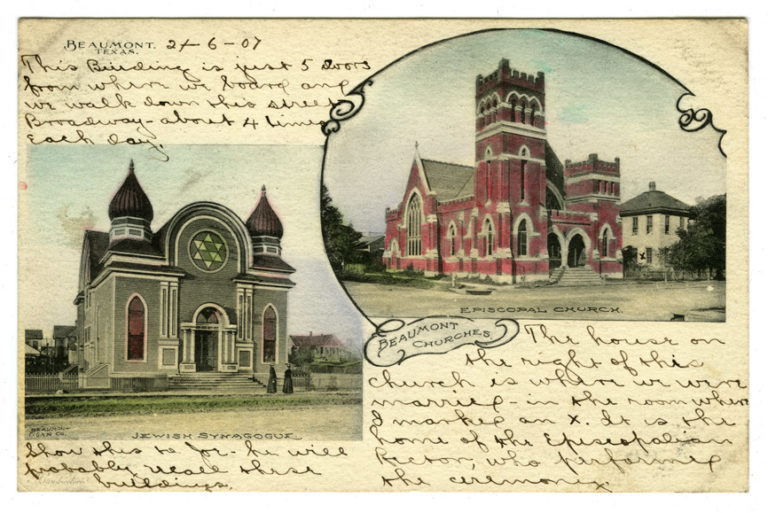 BEAUMONT. 2-6-07
TEXAS.
This Building is just 5 doors
from where we board and
we walk down this street
Broadway - about 4 times
each day.
EPISCOPAL CHURCH.
BEAUMONT
CHURCHES.
The house on
the right of this
church is where we were
married - in the room where
I marked an X. It is the
home of the Episcopalian
Rector, who performed
the ceremony.
BEAUMONT
CIGAR CO.
JEWISH SYNAGOGUE
Show this to Joe - he will
probably recall these
buildings.